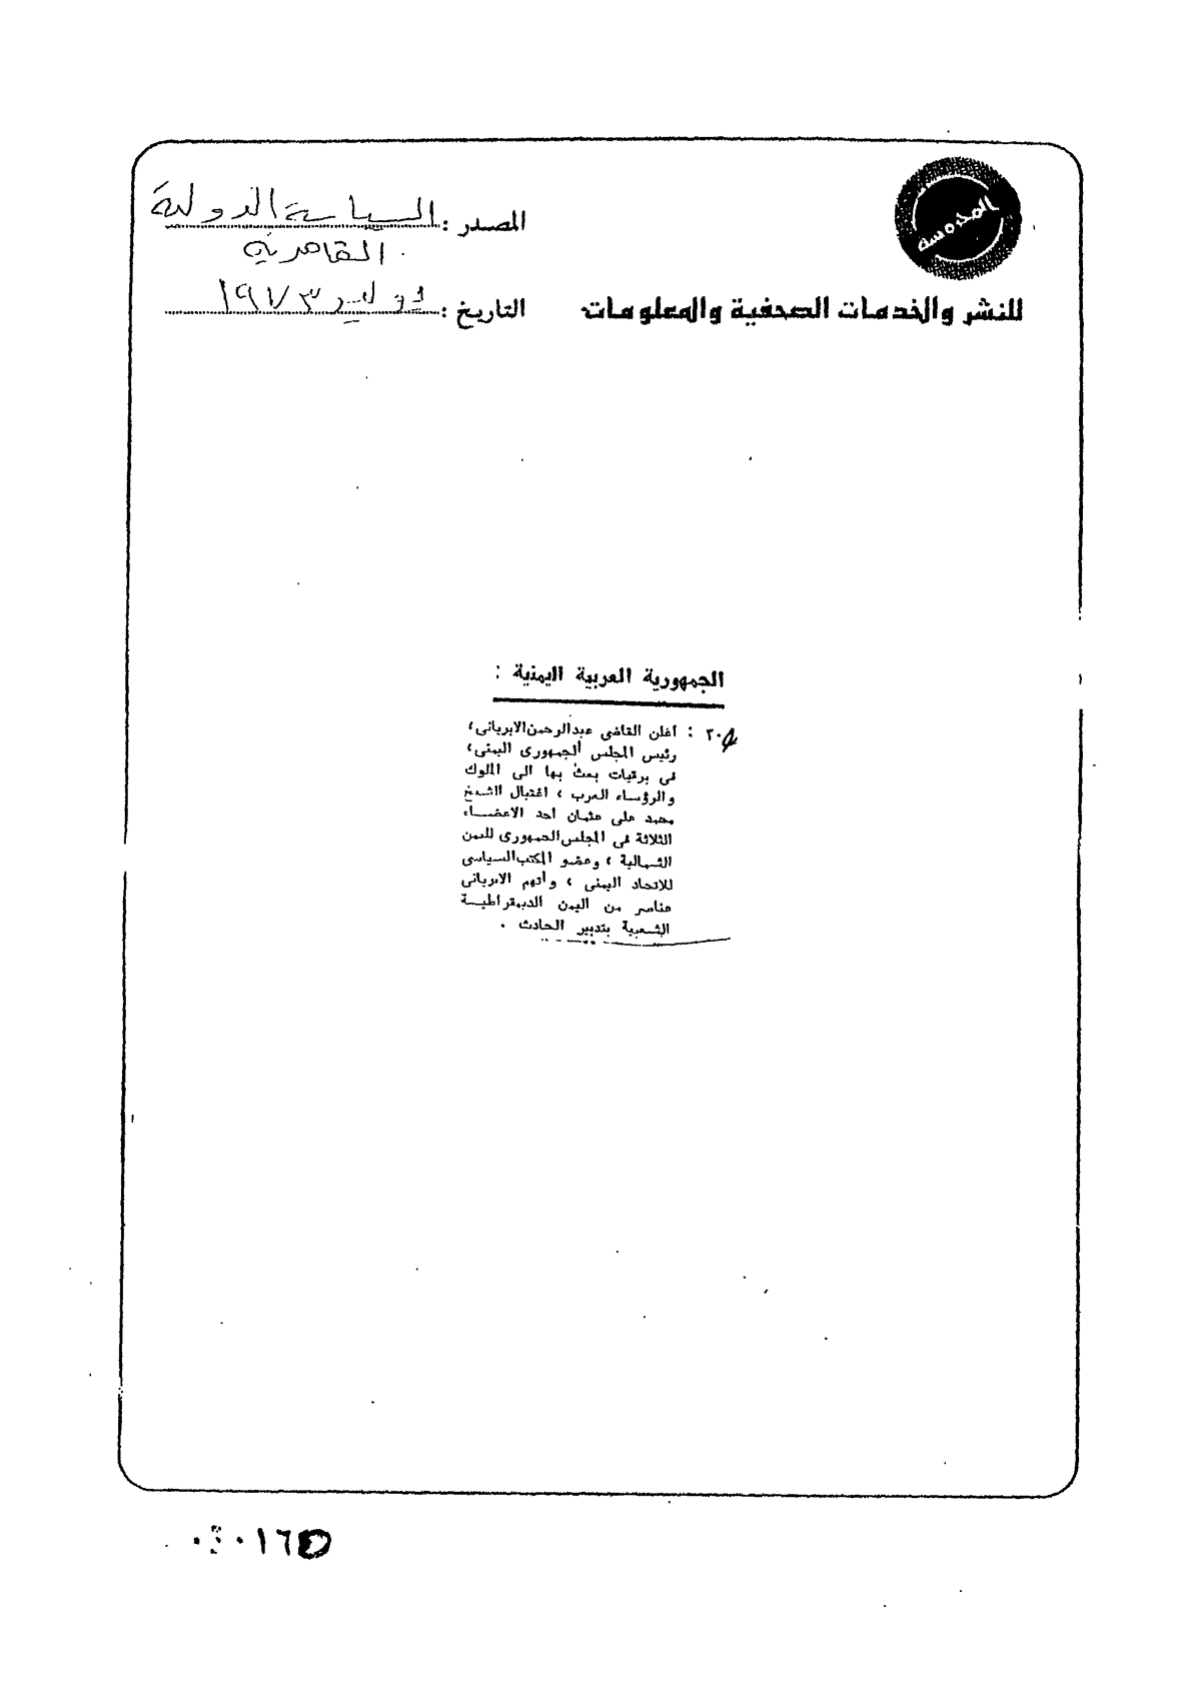 المحروسة
المصدر : السياسة الدولية
القاهرية
للنشر والخدمات الصحفية والمعلومات
التاريخ : يوليو ١٩٧٣
الجمهورية العربية اليمنية :
٣٠ : أعلن القاضى عبدالرحمن الايريانى ،
رئيس المجلس الجمهورى اليمنى ،
فى برقيات بعث بها الى الملوك
والرؤساء العرب ، اغتيال الشيخ
محمد على عثمان أحد الاعضاء
الثلاثة فى المجلس الجمهورى لليمن
الشمالية ، وعضو المكتب السياسى
للاتحاد اليمنى ، وأتهم الايريانى
عناصر من اليمن الديمقراطية
الشعبية بتدبير الحادث .